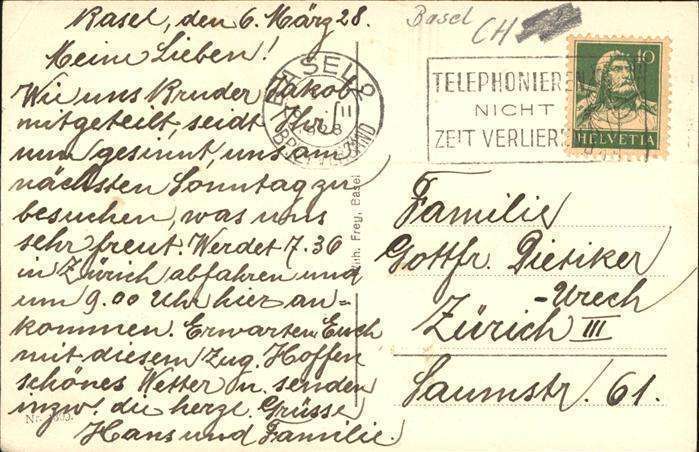 Basel, den 6. März 28.
Meine Lieben!
Wie uns Bruder Jakob
mitgeteilt, seidt Ihr
nun gesinnt, uns am
nächsten Sonntag zu
besuchen, was uns
sehr freut. Werdet 7.36
in Zürich abfahren und
um 9.00 Uhr hier an-
kommen. Erwarten Euch
mit diesem Zug. Hoffen
schönes Wetter u. senden
inzw. die herzl. Grüsse
Hans und Familie.
Basel
CH
BASEL 2
1928
TELEPHONIEREN
NICHT
ZEIT VERLIER
10
HELVETIA
Lith. Frey, Basel
Familie
Gottfr. Dietiker
-Urech
Zürich III
Saumstr. 61.